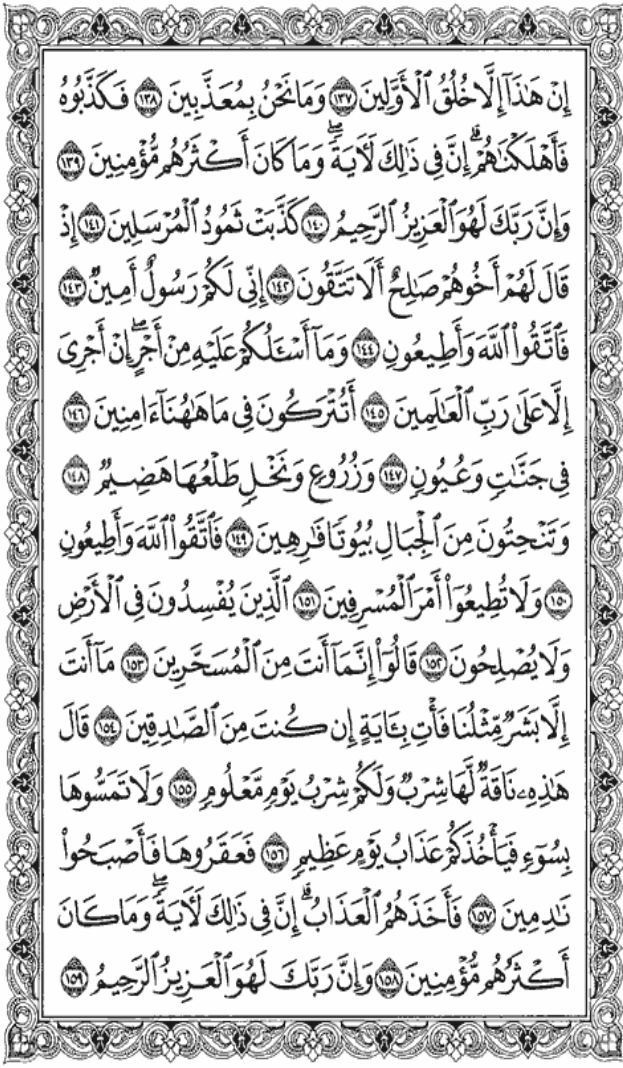 إِنْ هَـٰذَآ إِلَّا خُلُقُ ٱلْأَوَّلِينَ ١٣٧ وَمَا نَحْنُ بِمُعَذَّبِينَ ١٣٨ فَكَذَّبُوهُ
فَأَهْلَكْنَـٰهُمْ ۗ إِنَّ فِى ذَٰلِكَ لَـَٔايَةً ۖ وَمَا كَانَ أَكْثَرُهُم مُّؤْمِنِينَ ١٣٩
وَإِنَّ رَبَّكَ لَهُوَ ٱلْعَزِيزُ ٱلرَّحِيمُ ١٤٠ كَذَّبَتْ ثَمُودُ ٱلْمُرْسَلِينَ ١٤١ إِذْ
قَالَ لَهُمْ أَخُوهُمْ صَـٰلِحٌ أَلَا تَتَّقُونَ ١٤٢ إِنِّى لَكُمْ رَسُولٌ أَمِينٌ ١٤٣
فَٱتَّقُوا۟ ٱللَّهَ وَأَطِيعُونِ ١٤٤ وَمَآ أَسْـَٔلُكُمْ عَلَيْهِ مِنْ أَجْرٍ ۖ إِنْ أَجْرِىَ
إِلَّا عَلَىٰ رَبِّ ٱلْعَـٰلَمِينَ ١٤٥ أَتُتْرَكُونَ فِى مَا هَـٰهُنَآ ءَامِنِينَ ١٤٦
فِى جَنَّـٰتٍ وَعُيُونٍ ١٤٧ وَزُرُوعٍ وَنَخْلٍ طَلْعُهَا هَضِيمٌ ١٤٨
وَتَنْحِتُونَ مِنَ ٱلْجِبَالِ بُيُوتًا فَـٰرِهِينَ ١٤٩ فَٱتَّقُوا۟ ٱللَّهَ وَأَطِيعُونِ
١٥٠ وَلَا تُطِيعُوٓا۟ أَمْرَ ٱلْمُسْرِفِينَ ١٥١ ٱلَّذِينَ يُفْسِدُونَ فِى ٱلْأَرْضِ
وَلَا يُصْلِحُونَ ١٥٢ قَالُوٓا۟ إِنَّمَآ أَنتَ مِنَ ٱلْمُسَحَّرِينَ ١٥٣ مَآ أَنتَ
إِلَّا بَشَرٌ مِّثْلُنَا فَأْتِ بِـَٔايَةٍ إِن كُنتَ مِنَ ٱلصَّـٰدِقِينَ ١٥٤ قَالَ
هَـٰذِهِۦ نَاقَةٌ لَّهَا شِرْبٌ وَلَكُمْ شِرْبُ يَوْمٍ مَّعْلُومٍ ١٥٥ وَلَا تَمَسُّوهَا
بِسُوٓءٍ فَيَأْخُذَكُمْ عَذَابُ يَوْمٍ عَظِيمٍ ١٥٦ فَعَقَرُوهَا فَأَصْبَحُوا۟
نَـٰدِمِينَ ١٥٧ فَأَخَذَهُمُ ٱلْعَذَابُ ۗ إِنَّ فِى ذَٰلِكَ لَـَٔايَةً ۖ وَمَا كَانَ
أَكْثَرُهُم مُّؤْمِنِينَ ١٥٨ وَإِنَّ رَبَّكَ لَهُوَ ٱلْعَزِيزُ ٱلرَّحِيمُ ١٥٩